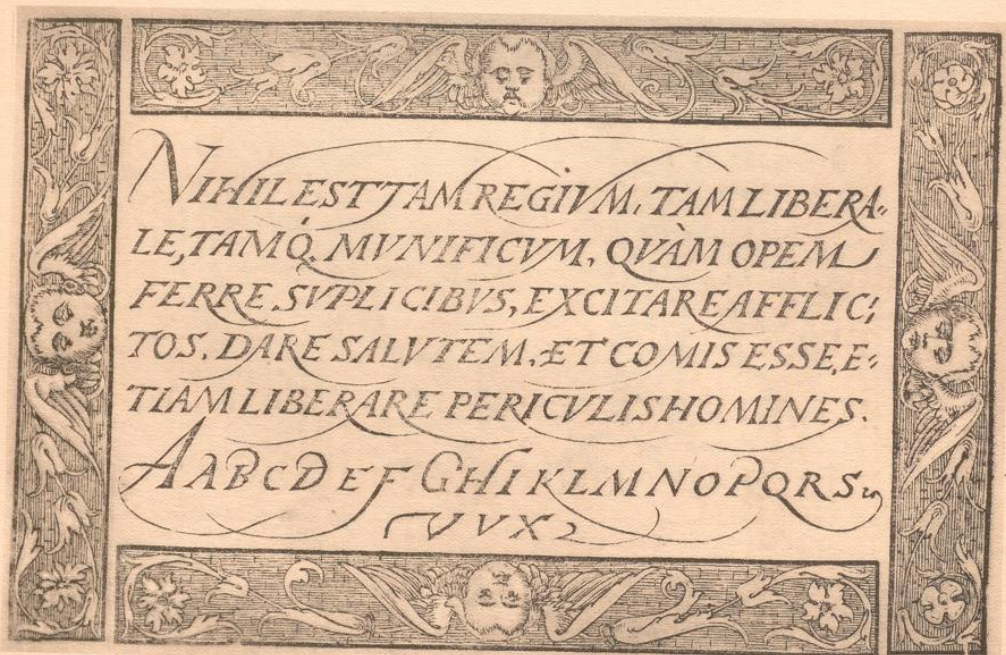 NIHIL EST TAM REGIVM, TAM LIBERA-
LE, TAMQ. MVNIFICVM, QVÀM OPEM
FERRE SVPLICIBVS, EXCITARE AFFLIC-
TOS, DARE SALVTEM, ET COMIS ESSE, E-
TIAM LIBERARE PERICVLIS HOMINES.
A A B C D E F G H I K L M N O P Q R S
T V V X Z